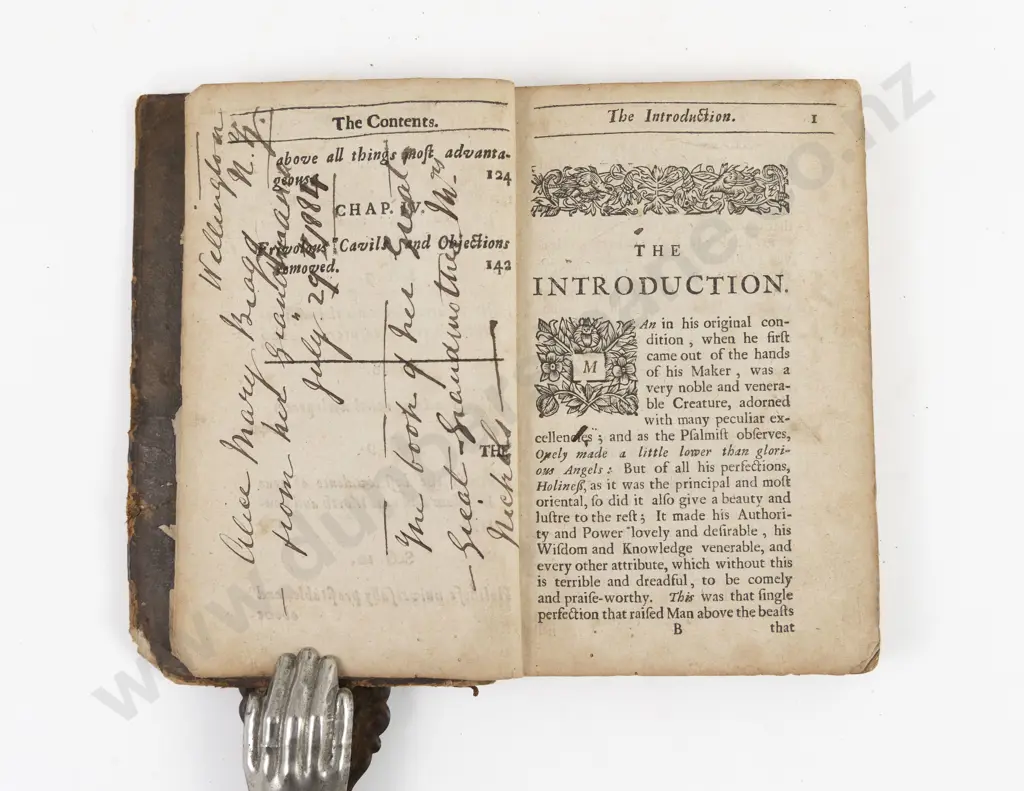 The Contents.
above all things most advanta-
geous. 124
CHAP. IV.
Frivolous Cavils and Objections
removed. 142
THE
Wellington
N.Z.
Alice Mary Bragg
from her Grandmama
July 29th 1884
The book of her Great
Great Grandmother Mrs
Nichols
The Introduction. 1
THE
INTRODUCTION.
MAn in his original con-
dition , when he first
came out of the hands
of his Maker , was a
very noble and venera-
ble Creature, adorned
with many peculiar ex-
cellencies ; and as the Psalmist observes,
Onely made a little lower than glori-
ous Angels : But of all his perfections,
Holiness, as it was the principal and most
oriental, so did it also give a beauty and
lustre to the rest ; It made his Authori-
ty and Power lovely and desirable , his
Wisdom and Knowledge venerable, and
every other attribute, which without this
is terrible and dreadful, to be comely
and praise-worthy. This was that single
perfection that raised Man above the beasts
B that